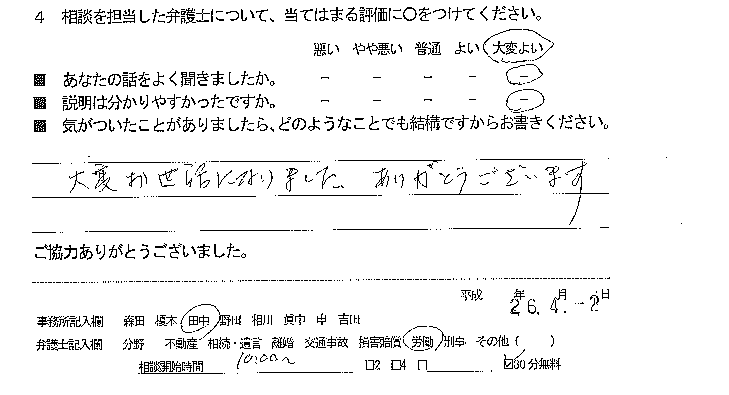 4 相談を担当した弁護士について、当てはまる評価に○をつけてください。
悪い やや悪い 普通 よい 大変よい
■ あなたの話をよく聞きましたか。 － － － － －
■ 説明は分かりやすかったですか。 － － － － －
■ 気がついたことがありましたら、どのようなことでも結構ですからお書きください。
大変お世話になりました。ありがとうございます
ご協力ありがとうございました。
平成 26年 4月 -2日
事務所記入欄 森田 榎木 田中 野田 相川 眞中 吉田
弁護士記入欄 分野 不動産 相続・遺言 離婚 交通事故 損害賠償 労働 刑事 その他（ ）
相談開始時間 10:00~ □2 □4 □ ☑30分無料